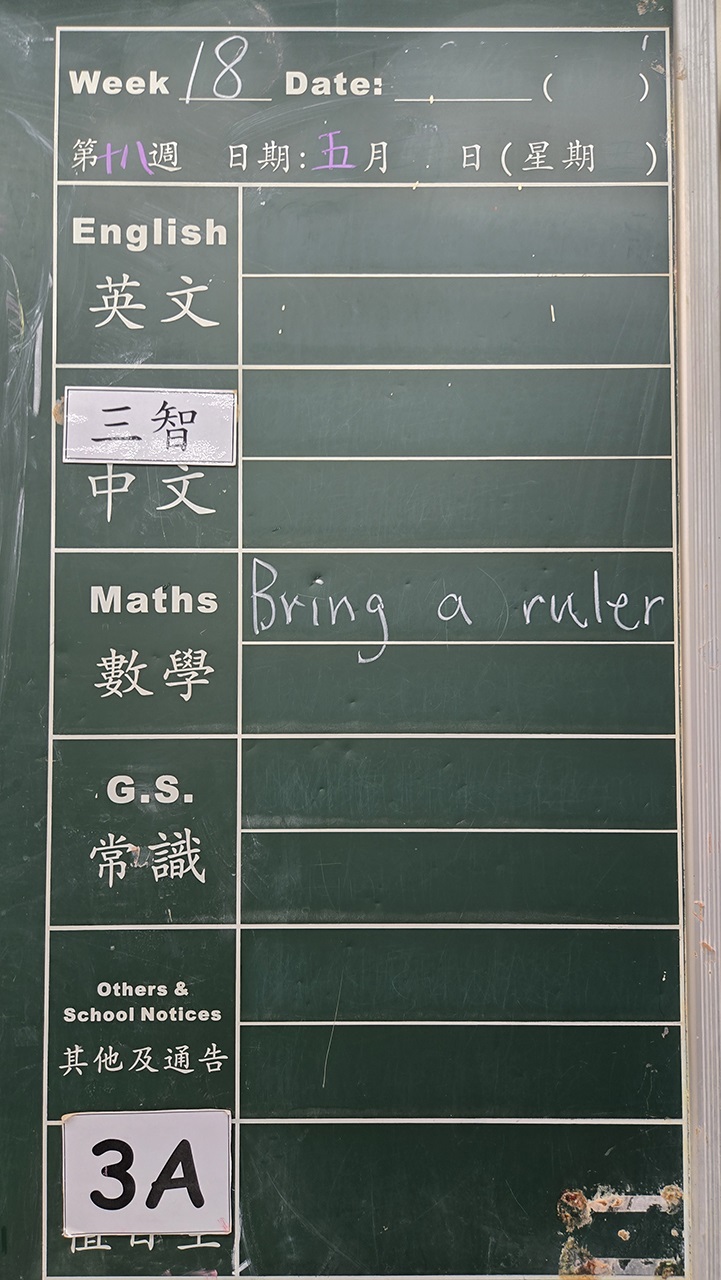 Week 18 Date: ( )
第十八週 日期:五月 日(星期 )
English
英文
三智
中文
Maths
Bring a ruler
數學
G.S.
常識
Others &
School Notices
其他及通告
3A
值日生